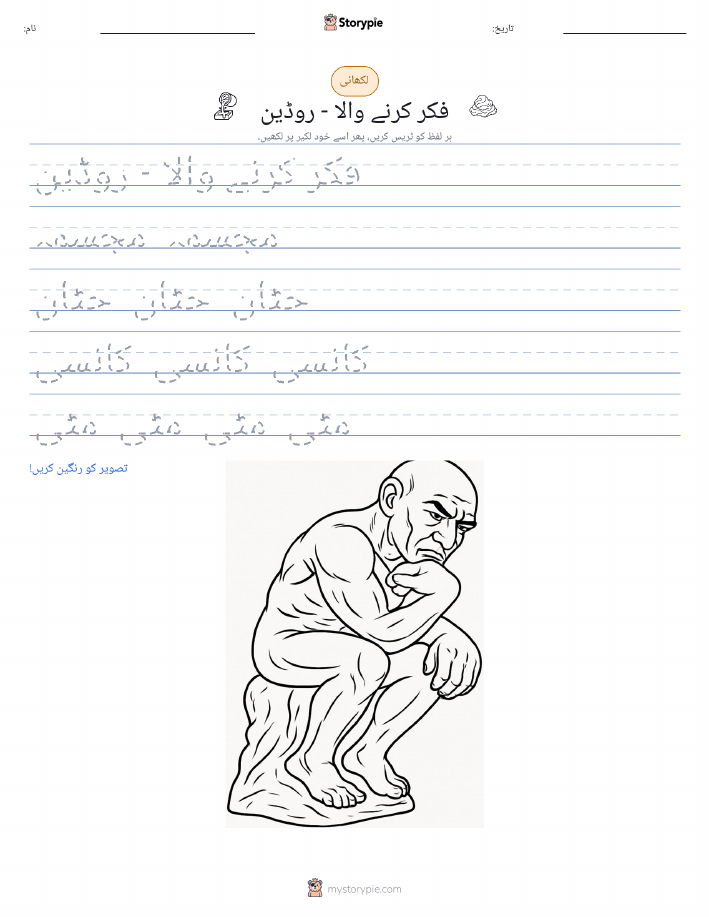 Storypie
نام:
تاریخ:
لکھائی
فکر کرنے والا - روڈین
ہر لفظ کو ٹریس کریں، پھر اسے خود لکیر پر لکھیں۔
فکر کرنے والا - روڈین
مجسمہ مجسمہ
چٹان چٹان چٹان
کانسی کانسی کانسی
مٹی مٹی مٹی مٹی
تصویر کو رنگین کریں!
mystorypie.com